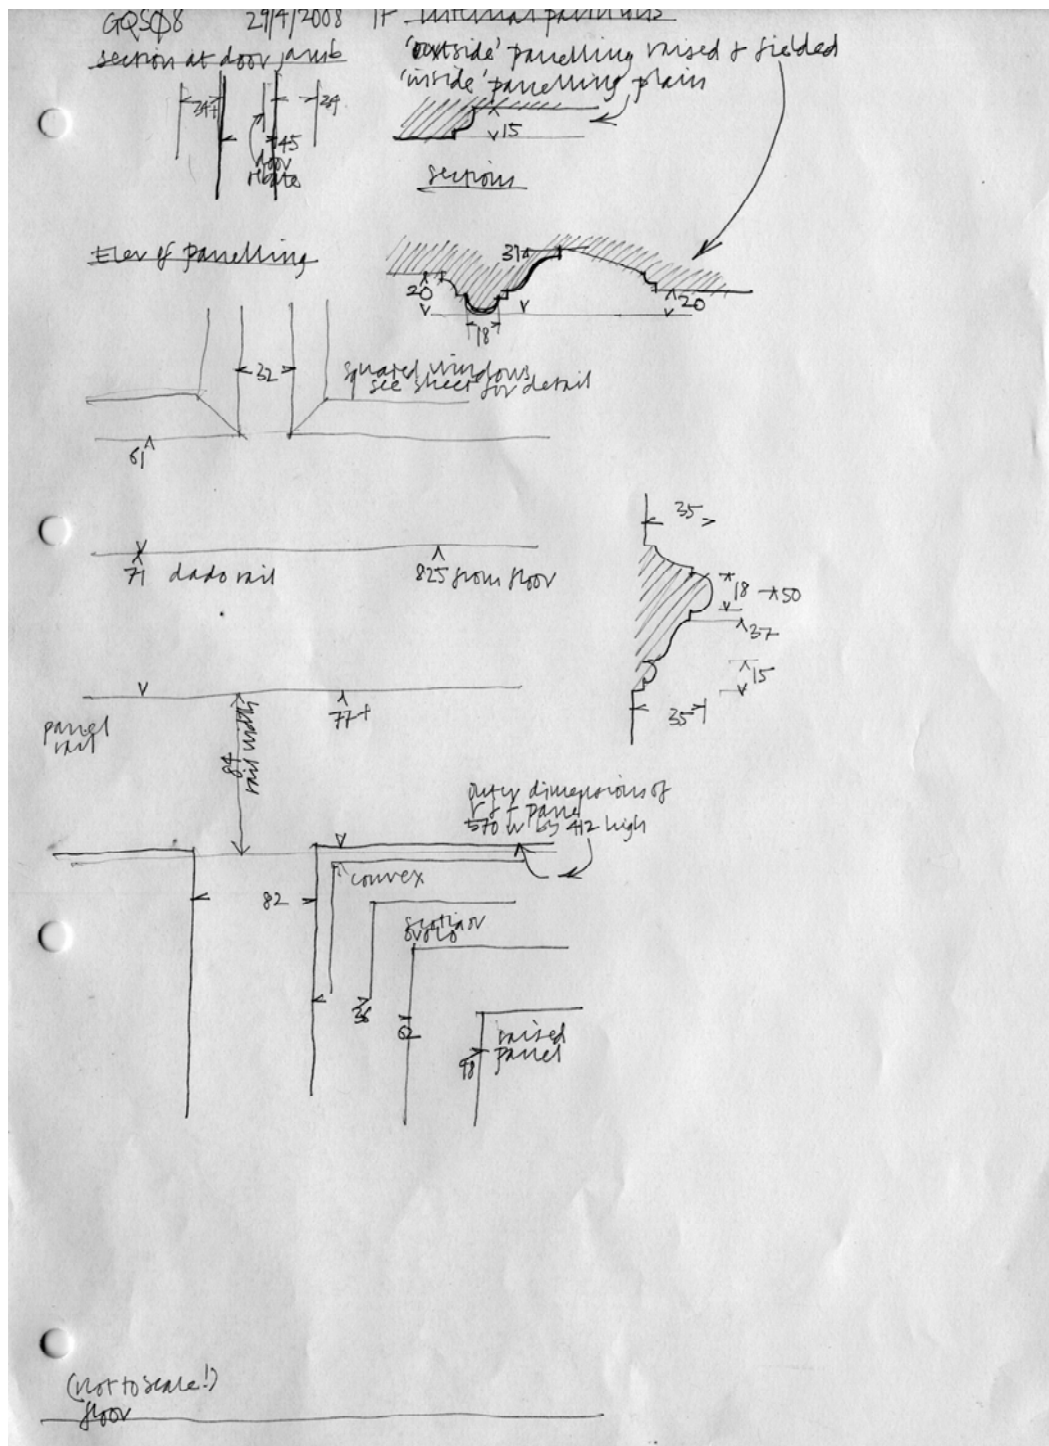 GQSØ8 29/4/2008 1F internal partitions
section at door jamb
'outside' panelling raised & fielded
'inside' panelling plain
34+
39
45
door
rebate
15
sections
Elev of panelling
31
20
18
20
32
squared windows
see sheet for detail
61
71 dado rail
825 from floor
35
18
50
37
15
35
panel
rail
77+
84
outer dimensions of
r & f panel
570 w by 412 high
convex
82
scotia or
ovolo
36
62
98
raised
panel
(not to scale!)
floor